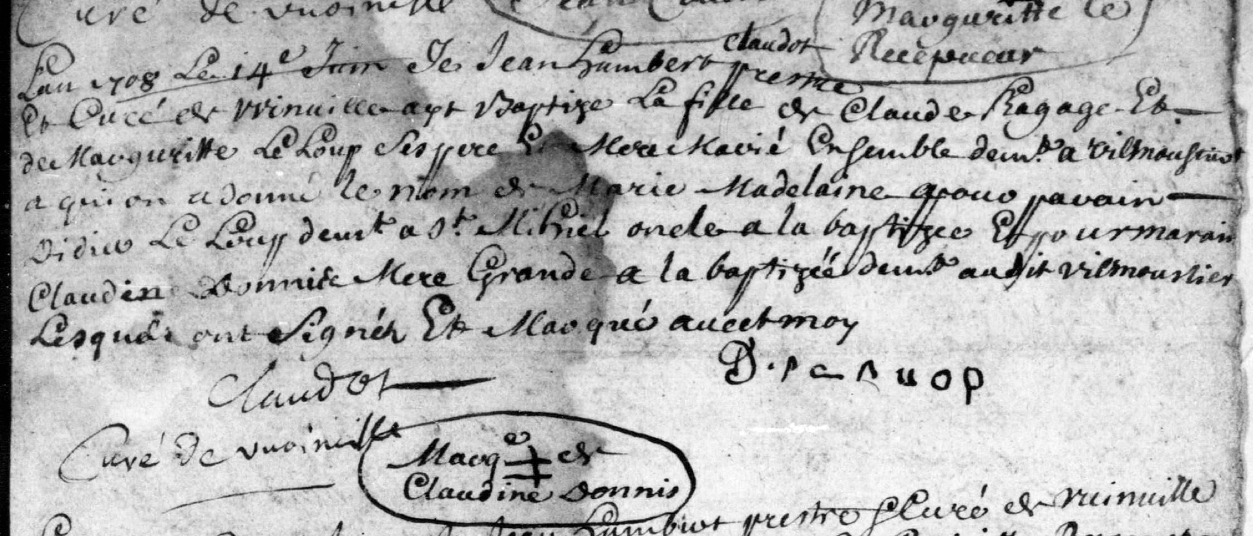 Curé de vuoinville
Margueritte le
Recepveur
L'an 1708 Le 14e Juin Je Jean Humbert claudot prestre
Et Curé de vuinville ayt Baptize La fille de Claude Ragage Et
de Margueritte Le Loup Ses pere Et Mere Marié Ensemble demt a vilmoustier
a qui on a donné le nom de Marie Madelaine pour parain
Didier Le Loup demt a St Mihiel oncle a la baptizee Et pour marain
Claudin Donnis Mere Grande a la baptizéé demt audit vilmoustier
Lesquels ont Signéz Et Marqué avect moy
Claudot
D. le Luop
Curé de vuoinville
Marqe de
Claudine Donnis
prestre Curé de vuinville